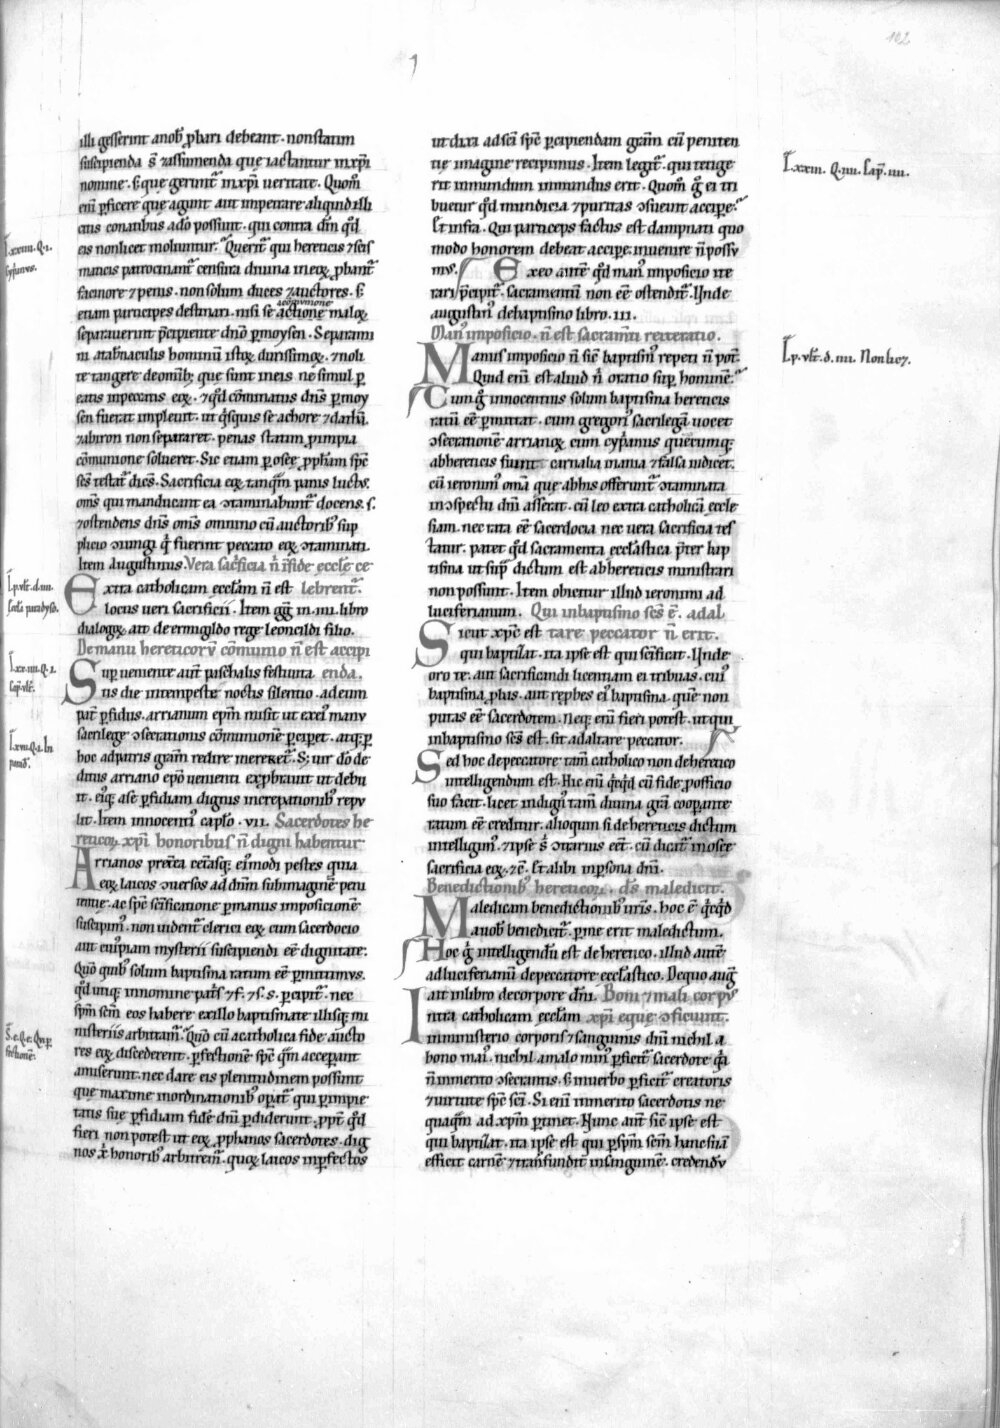 102
illi gesserint anob' ꝓbari debeant. non statim
suscipienda s̄ ⁊assumenda que iactantur in xp̄i
nomine. s; que gerunt᷑ in xp̄i ueritate. Quom̄
eni ꝑficere que agunt aut impetrare aliquid illi
citis conatibus ado possunt. qui contra dm̄ qd̄
eis non licet moliuntur. Querit᷑ qui hereticis ⁊scis
maticis patrocinant᷑ censura diuina in eoꝝ ꝓbant᷑
facinore ⁊penis. non solum duces ⁊auctores. s;
etiam participes destinari. nisi se actione maloꝝ
separauerint p̄cipiente dn̄o ꝑ moysen. Separami
ni a tab̄naculis hominū istoꝝ durissimoꝝ. ⁊noli
te tangere de omnib; que sunt in eis ne simul ꝑ
eatis in peccatis eoꝝ. ⁊qd̄ cōminatus dn̄s ꝑ moy
sen fuerat impleuit. ut q̄squis se a chore ⁊dathā.
⁊abiron non separaret. penas statim ꝓ impia
cōmunione solueret. Sic etiam ꝑ osee ꝓph̄am sp̄c
sc̄s testat᷑ dicēs. Sacrificia eoꝝ tanq̄m panis luctꝰ.
om̄s qui manducant ea ↄtaminabunt᷑ docens. s.
⁊ostendens dn̄s om̄s omnino cū auctorib' sup
plicio ↄiungi q̄ fuerint peccato eoꝝ ↄtaminati.
Item augustinus. Vera sac̄ficia n̄ īfide eccl̄e ce
Extra catholicam eccl̄am n̄ est lebrent᷑.
locus ueri sacrificii. Item gḡ in .iii. libro
dialogoꝝ ait de ermigildo rege leonicildi filio.
De manu hereticoꝝ cōmunio n̄ est accipi
Superueniente aut᷑ paschalis festiuita enda.
tis die intempeste noctis silentio. ad eum
pat᷑ ꝑfidus. arrianum ep̄m misit ut ex ei' manu
sacrilege ↄsecrationis cōmunionē ꝑciꝑet. atq; ꝑ
hoc ad patris gr̄am redire mereret᷑. S; uir dō de
ditus arriano ep̄o uenienti exꝓbrauit ut debu
it. ei'q; a se ꝑfidiam dignis increpationib' repu
lit. Item innocenti' capl̄o .vii. Sacerdotes he
reticoꝝ xp̄i honoribus n̄ digni habentur.
Arrianos pret̄ea cet̄asq; ei'modi pestes quia
eoꝝ laicos ↄuersos ad dn̄m sub imaginē peni
tentie. ac sp̄c sc̄ificatione ꝑ manus impositionē
suscipim'. non uident᷑ clerici eoꝝ cum sacerdocio
aut cui'piam mysterii suscipiendi eē dignitate.
Quō quib' solum baptisma ratum eē ꝑmittimus.
qd̄ utiq; in nomine pat̄s ⁊f. ⁊s. s. ꝑcipit᷑. nec
sp̄m sc̄m eos habere ex illo baptismate illisq; mi
nisteriis arbitram'. Quō cū a catholica fide aucto
res eoꝝ discederent. ꝑfectionē sp̄c q̄m acceperant
amiserunt. nec dare eis plenitudinem possunt
que maxime in ordinationib' oꝑat᷑ qui ꝑ impie
tatis sue ꝑfidiam fidē dn̄i ꝑdiderunt. ꝓpt᷑ qd̄
fieri non potest ut eoꝝ ꝓphanos sacerdotes. dig
nos x̄ honorib' arbitrem'. quoꝝ laicos inꝑfectos
ut dixi ad sc̄i sp̄c ꝑcipiendam gr̄am cū peniten
tie imagine recipimus. Item legit᷑. qui tetige
rit inmundum inmundus erit. Quom̄ g̊ ei tri
buetur qd̄ mundicia ⁊puritas ↄsueuit accipe᷑.
Et infra. Qui particeps factus est dampnati quo
modo honorem debeat accipe inuenire n̄ possu
mus. Ex eo autē qd̄ man' imposicio ite
rari p̄cipit᷑. sacramentū non eē ostendit᷑. Vnde
augustin' de baptismo libro .iii.
Man' imposicio. n̄ est sacram̄ti reiteratio.
Manus imposicio n̄ sic̄ baptism' repeti n̄ pot᷑.
Quid eni est aliud n̄ oratio sup hominē.
Cum g̊ innocentius solum baptisma hereticis
ratū eē ꝑmittat. cum gregori' sacrilegā uocet
ↄsecrationē arrianoꝝ cum cyp̄anus quecumq;
ab hereticis fiunt carnalia inania ⁊falsa iudicet.
cū ieronim' om̄a que ab his offerunt᷑ ↄtaminata
in ↄspectu dn̄i asserat. cū leo extra catholicā eccle
siam. nec rata eē sacerdocia nec uera sacrificia tes
tatur. patet qd̄ sacramenta eccl̄astica p̄ter bap
tisma ut sup' dictum est ab hereticis ministrari
non possunt. Item obicitur illud ieronimi ad
luciferianum. Qui in baptismo sc̄s ē. ad al
Sicut xp̄c est tare peccator n̄ erit.
qui baptizat. ita ipse est qui sc̄ificat. Vnde
oro te. aut sacrificandi licentiam ei tribuas. cui'
baptisma ꝓbas. aut reꝓbes ei' baptisma. quē non
putas eē sacerdotem. Neq; eni fieri potest. ut qui
in baptismo sc̄s est. sit ad altare peccator.
Sed hoc de peccatore tam̄ catholico non de heretico
intelligendum est. Hic eni q̄cq̄d cū fide ꝓ officio
suo facit. licet indign' tam̄ diuina gr̄a cooꝑante
ratum eē creditur. alioquin si de hereticis dictum
intelligim'. ⁊ipse s' ↄtrarius eēt. cū dicat᷑ in osee
sacrificia eoꝝ. ⁊c̄. Et alibi in ꝑsona dn̄i.
Benedictionib' hereticoꝝ. dn̄s maledicit.
Maledicam benedictionib' uris. hoc ē q̄cq̄d
a uob' benedicit᷑. ꝑ me erit maledictum.
Hoc g̊ intelligendū est de heretico. illud autē
ad luciferianū de peccatore eccl̄astico. De quo aug̊
ait in libro de corpore dn̄i. Boni ⁊mali corp'
Intra catholicam eccl̄am xp̄i eque ↄficiunt.
in ministerio corporis ⁊sanguinis dn̄i nichil a
bono mai'. nichil a malo min' ꝑficit᷑ sacerdote q̄a
n̄ in merito ↄsecrantis. s; in uerbo ꝑficit᷑ creatoris
⁊uirtute sp̄c sc̄i. Si eni in merito sacerdotis ne
quaq̄m ad xp̄m ꝑtinet. Nunc aut᷑ sic̄ ipse est
qui baptizat. ita ipse est qui ꝑ sp̄m sc̄m hanc suā
efficit carnē ⁊transfundit᷑ in sanguinē. credendū
xxiiii. Q.i.
Cyp̄anus.
l.p. vlt. d. iiii.
Cap.vlt.
xxiii. Q.iiii. Cap.iiii.